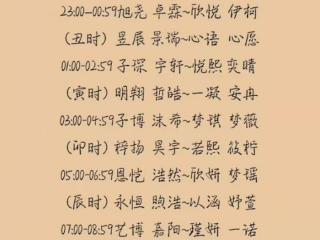 23:00-00:59旭尧 卓霖~欣悦 伊柯
(丑时) 昱辰 景瑞~心语 心愿
01:00-02:59子琛 宇轩~悦熙 奕晴
(寅时) 明翔 哲皓~一凝 安冉
03:00-04:59子博 沐希~梦琪 梦薇
(卯时) 梓扬 昊宇~若熙 筱柠
05:00-06:59恩恺 浩然~欣妍 梦瑶
(辰时) 永恒 煦浩~以涵 妤萱
07:00-08:59艺博 嘉阳~瑾妍 一诺